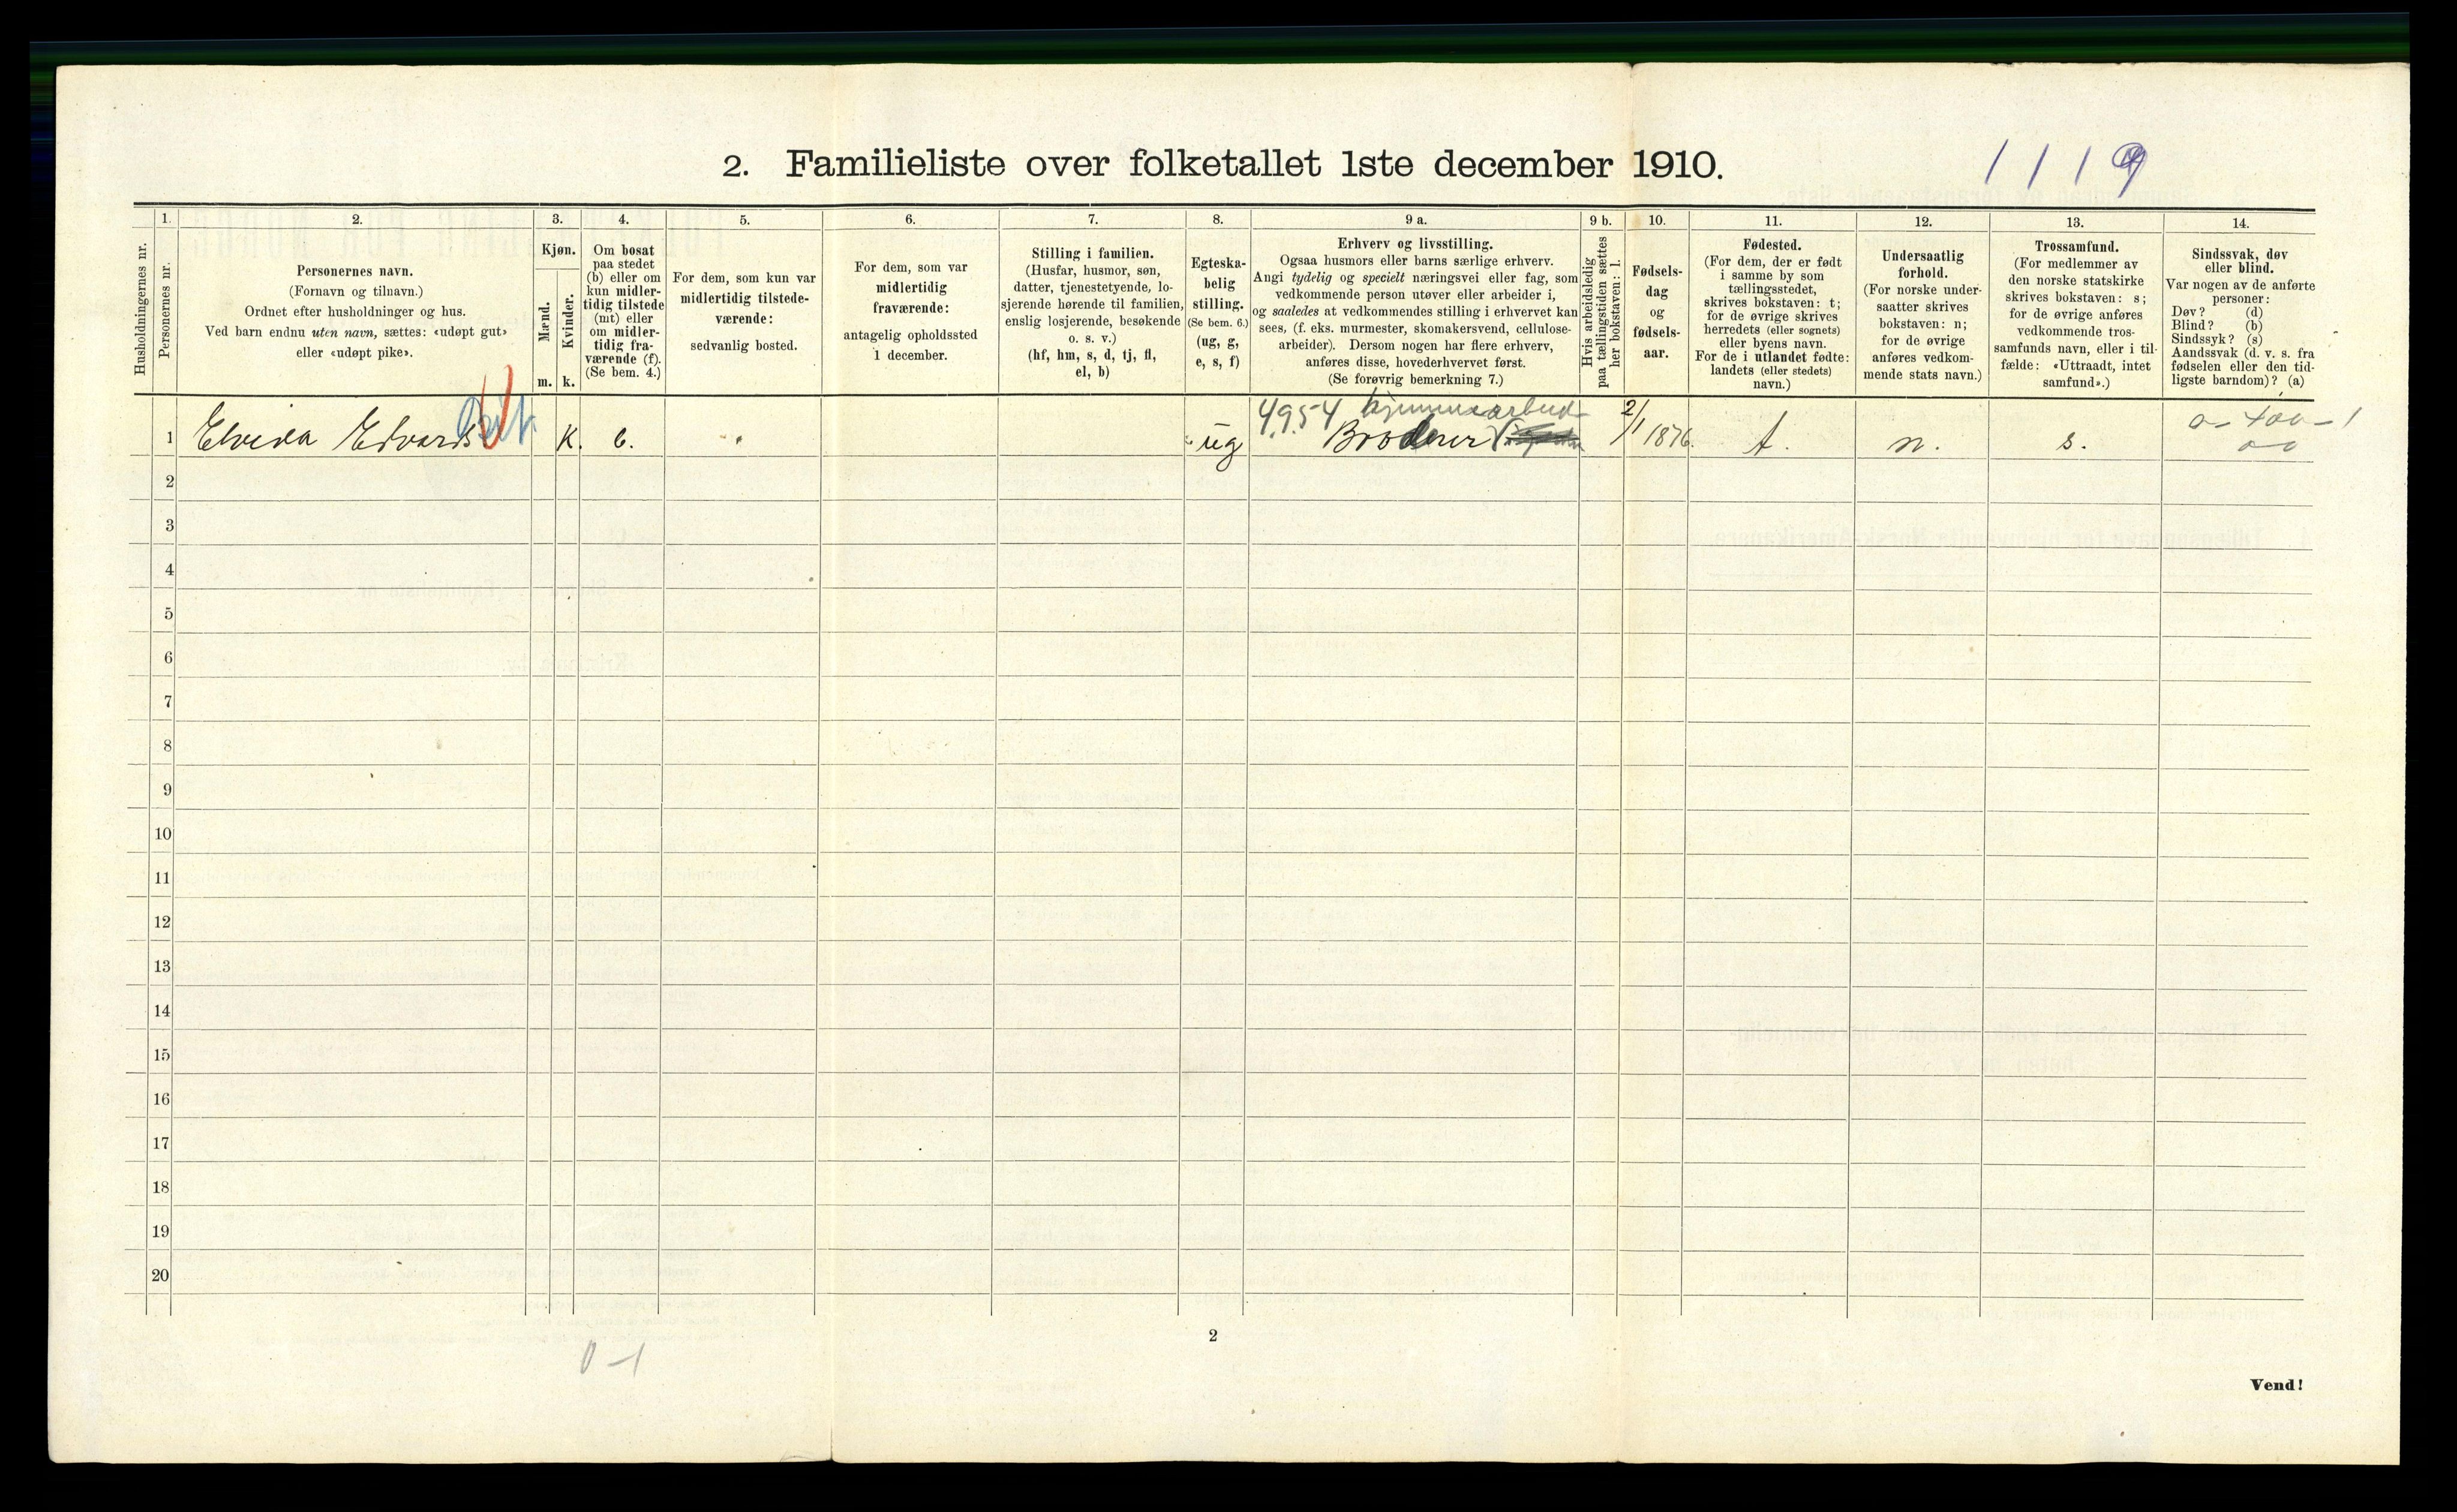 2. Familieliste over folketallet 1ste december 1910.
1119
Husholdningernes nr.
1.
Personernes nr.
2.
Personernes navn.
(Fornavn og tilnavn.)
Ordnet efter husholdninger og hus.
Ved barn endnu uten navn, sættes: «udøpt gut»
eller «udøpt pike».
3.
Kjøn.
Mænd.
Kvinder.
m. k.
4.
Om bosat
paa stedet
(b) eller om
kun midler-
tidig tilstede
(mt) eller
om midler-
tidig fra-
værende (f).
(Se bem. 4.)
5.
For dem, som kun var
midlertidig tilstede-
værende:
sedvanlig bosted.
6.
For dem, som var
midlertidig
fraværende:
antagelig opholdssted
1 december.
7.
Stilling i familien.
(Husfar, husmor, søn,
datter, tjenestetyende, lo-
sjerende hørende til familien,
enslig losjerende, besøkende
o. s. v.)
(hf, hm, s, d, tj, fl,
el, b)
8.
Egteska-
belig
stilling.
(Se bem. 6.)
(ug, g,
e, s, f)
9 a.
Erhverv og livsstilling.
Ogsaa husmors eller barns særlige erhverv.
Angi tydelig og specielt næringsvei eller fag, som
vedkommende person utøver eller arbeider i,
og saaledes at vedkommendes stilling i erhvervet kan
sees, (f. eks. murmester, skomakersvend, cellulose-
arbeider). Dersom nogen har flere erhverv,
anføres disse, hovederhvervet først.
(Se forøvrig bemerkning 7.)
9 b.
Hvis arbeidsledig
paa tællingstiden sættes
her bokstaven: l.
10.
Fødsels-
dag
og
fødsels-
aar.
11.
Fødested.
(For dem, der er født
i samme by som
tællingsstedet,
skrives bokstaven: t;
for de øvrige skrives
herredets (eller sognets)
eller byens navn.
For de i utlandet fødte:
landets (eller stedets)
navn.)
12.
Undersaatlig
forhold.
(For norske under-
saatter skrives
bokstaven: n;
for de øvrige
anføres vedkom-
mende stats navn.)
13.
Trossamfund.
(For medlemmer av
den norske statskirke
skrives bokstaven: s;
for de øvrige anføres
vedkommende tros-
samfunds navn, eller i til-
fælde: «Uttraadt, intet
samfund».)
14.
Sindssvak, døv
eller blind.
Var nogen av de anførte
personer:
Døv? (d)
Blind? (b)
Sindssyk? (s)
Aandssvak (d. v. s. fra
fødselen eller den tid-
ligste barndom)? (a)
4954 hjemmearbeid 0-400-1
1 Elvida Edvards K. b. ug Broderer 2/1 1876. t. n. s. 00
2
3
4
5
6
7
8
9
10
11
12
13
14
15
16
17
18
19
20
0-1
2
Vend!